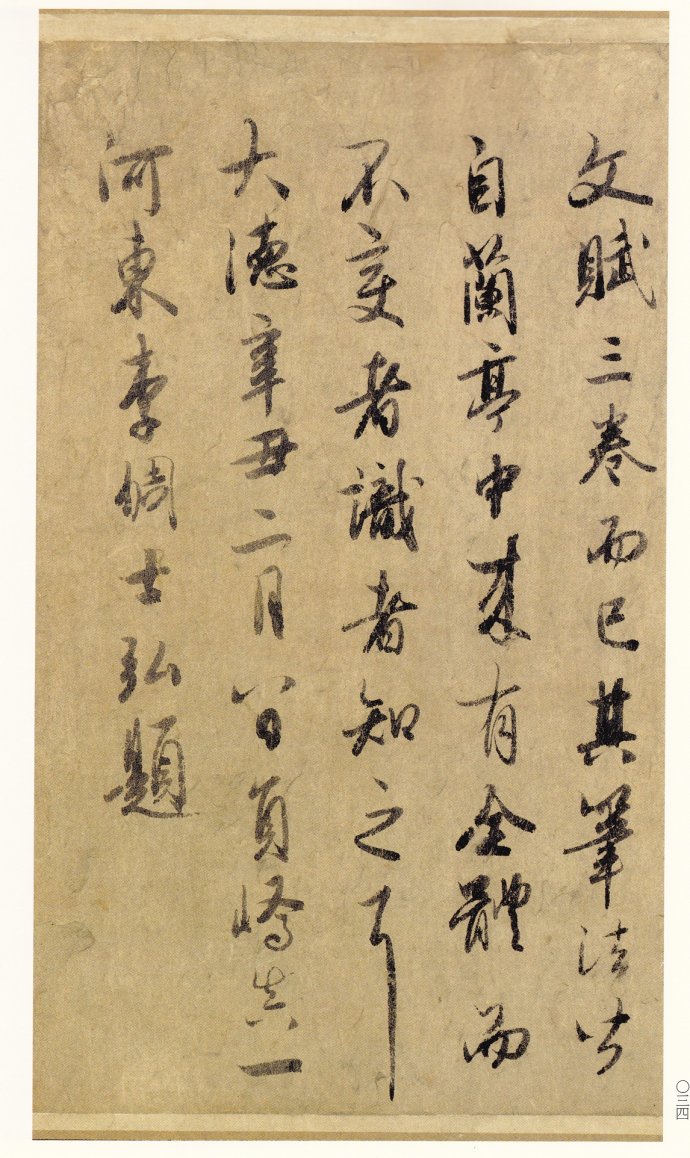 文賦三卷而已其筆法皆
自蘭亭中來有全體而
不变者識者知之耳
大德辛丑二月八日員嶠真一
河東李倜士弘題
〇三四